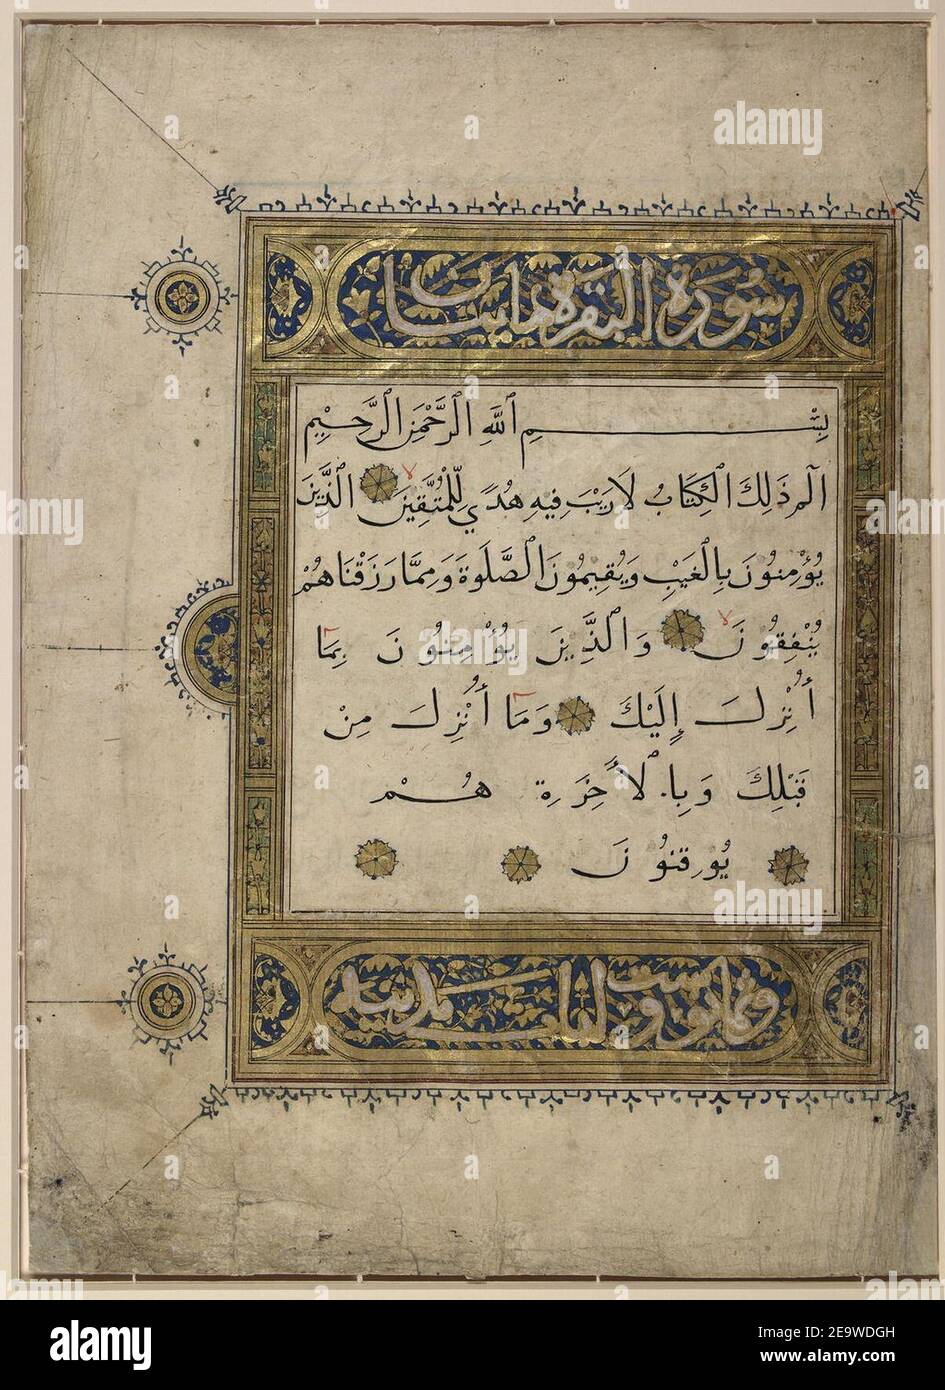 سورة البقرة مايتان
بِسْمِ ٱللَّهِ ٱلرَّحْمَٰنِ ٱلرَّحِيمِ
الم ذَلِكَ ٱلْكِتَابُ لَا رَيْبَ فِيهِ هُدًى لِلْمُتَّقِينَ ٱلَّذِينَ
يُؤْمِنُونَ بِالْغَيْبِ وَيُقِيمُونَ ٱلصَّلَوةَ وَمِمَّا رَزَقْنَاهُمْ
يُنْفِقُونَ وَٱلَّذِينَ يُؤْمِنُونَ بِمَا
أُنْزِلَ إِلَيْكَ وَمَا أُنْزِلَ مِنْ
قَبْلِكَ وَبِالْأَخِرَةِ هُمْ
يُوقِنُونَ
وثمانون وست ايات مدنية
alamy
a
alamy
Image ID: 2E9WDGH
www.alamy.com